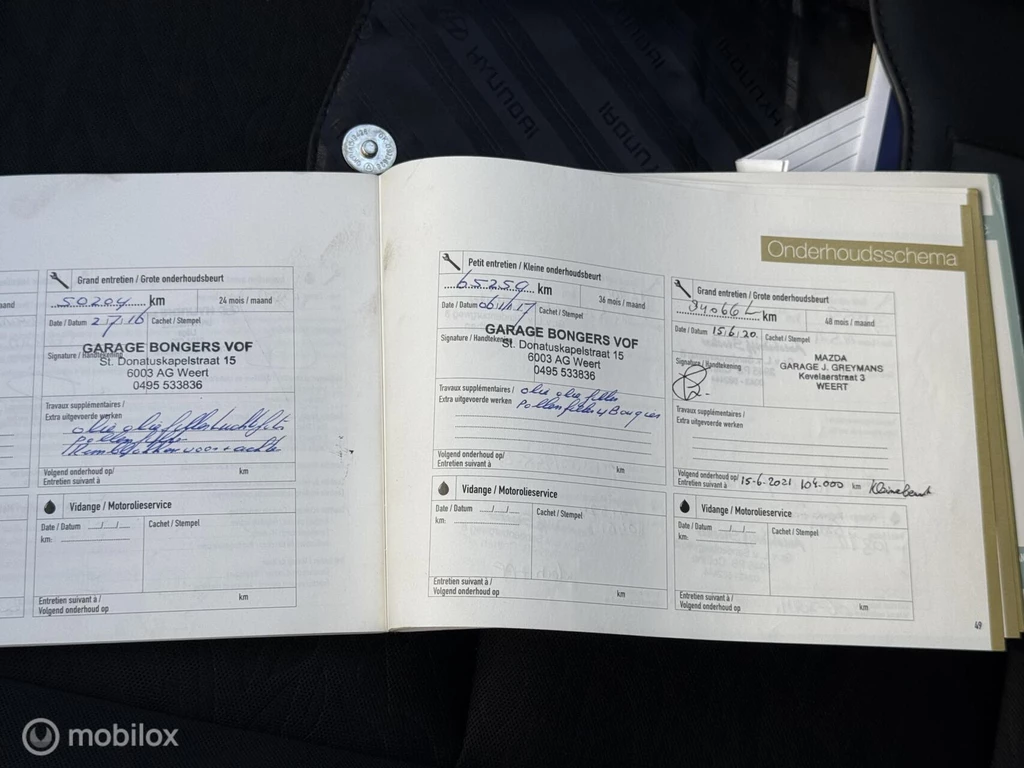 HYUNDAI
Onderhoudsschema
Grand entretien / Grote onderhoudsbeurt
50204 km
24 mois / maand
Date / Datum 2 / 7 / 16
Cachet / Stempel
GARAGE BONGERS VOF
St. Donatuskapelstraat 15
6003 AG Weert
0495 533836
Signature / Handtekening
Travaux supplémentaires /
Extra uitgevoerde werken
olie oliefilter luchtfilter
pollenfilter
Remblokken voor + achter
Volgend onderhoud op/
Entretien suivant à
km
Vidange / Motorolieservice
Date / Datum __/__/__
Cachet / Stempel
km:
Entretien suivant à /
Volgend onderhoud op
km
Petit entretien / Kleine onderhoudsbeurt
65259 km
36 mois / maand
Date / Datum 06/11/17
Cachet / Stempel
GARAGE BONGERS VOF
St. Donatuskapelstraat 15
6003 AG Weert
0495 533836
Signature / Handtekening
Travaux supplémentaires /
Extra uitgevoerde werken
olie olie filter
Pollenfilter 4 Bougies
Volgend onderhoud op/
Entretien suivant à
km
Vidange / Motorolieservice
Date / Datum __/__/__
Cachet / Stempel
km:
Entretien suivant à /
Volgend onderhoud op
km
Grand entretien / Grote onderhoudsbeurt
km
48 mois / maand
Date / Datum 15/6/20
Cachet / Stempel
MAZDA
GARAGE J. GREYMANS
Kevelaerstraat 3
WEERT
Signature / Handtekening
Travaux supplémentaires /
Extra uitgevoerde werken
Volgend onderhoud op/
Entretien suivant à 15-6-2021 104.000 km Kleine beurt
Vidange / Motorolieservice
Date / Datum __/__/__
Cachet / Stempel
km:
Entretien suivant à /
Volgend onderhoud op
km
49
mobilox